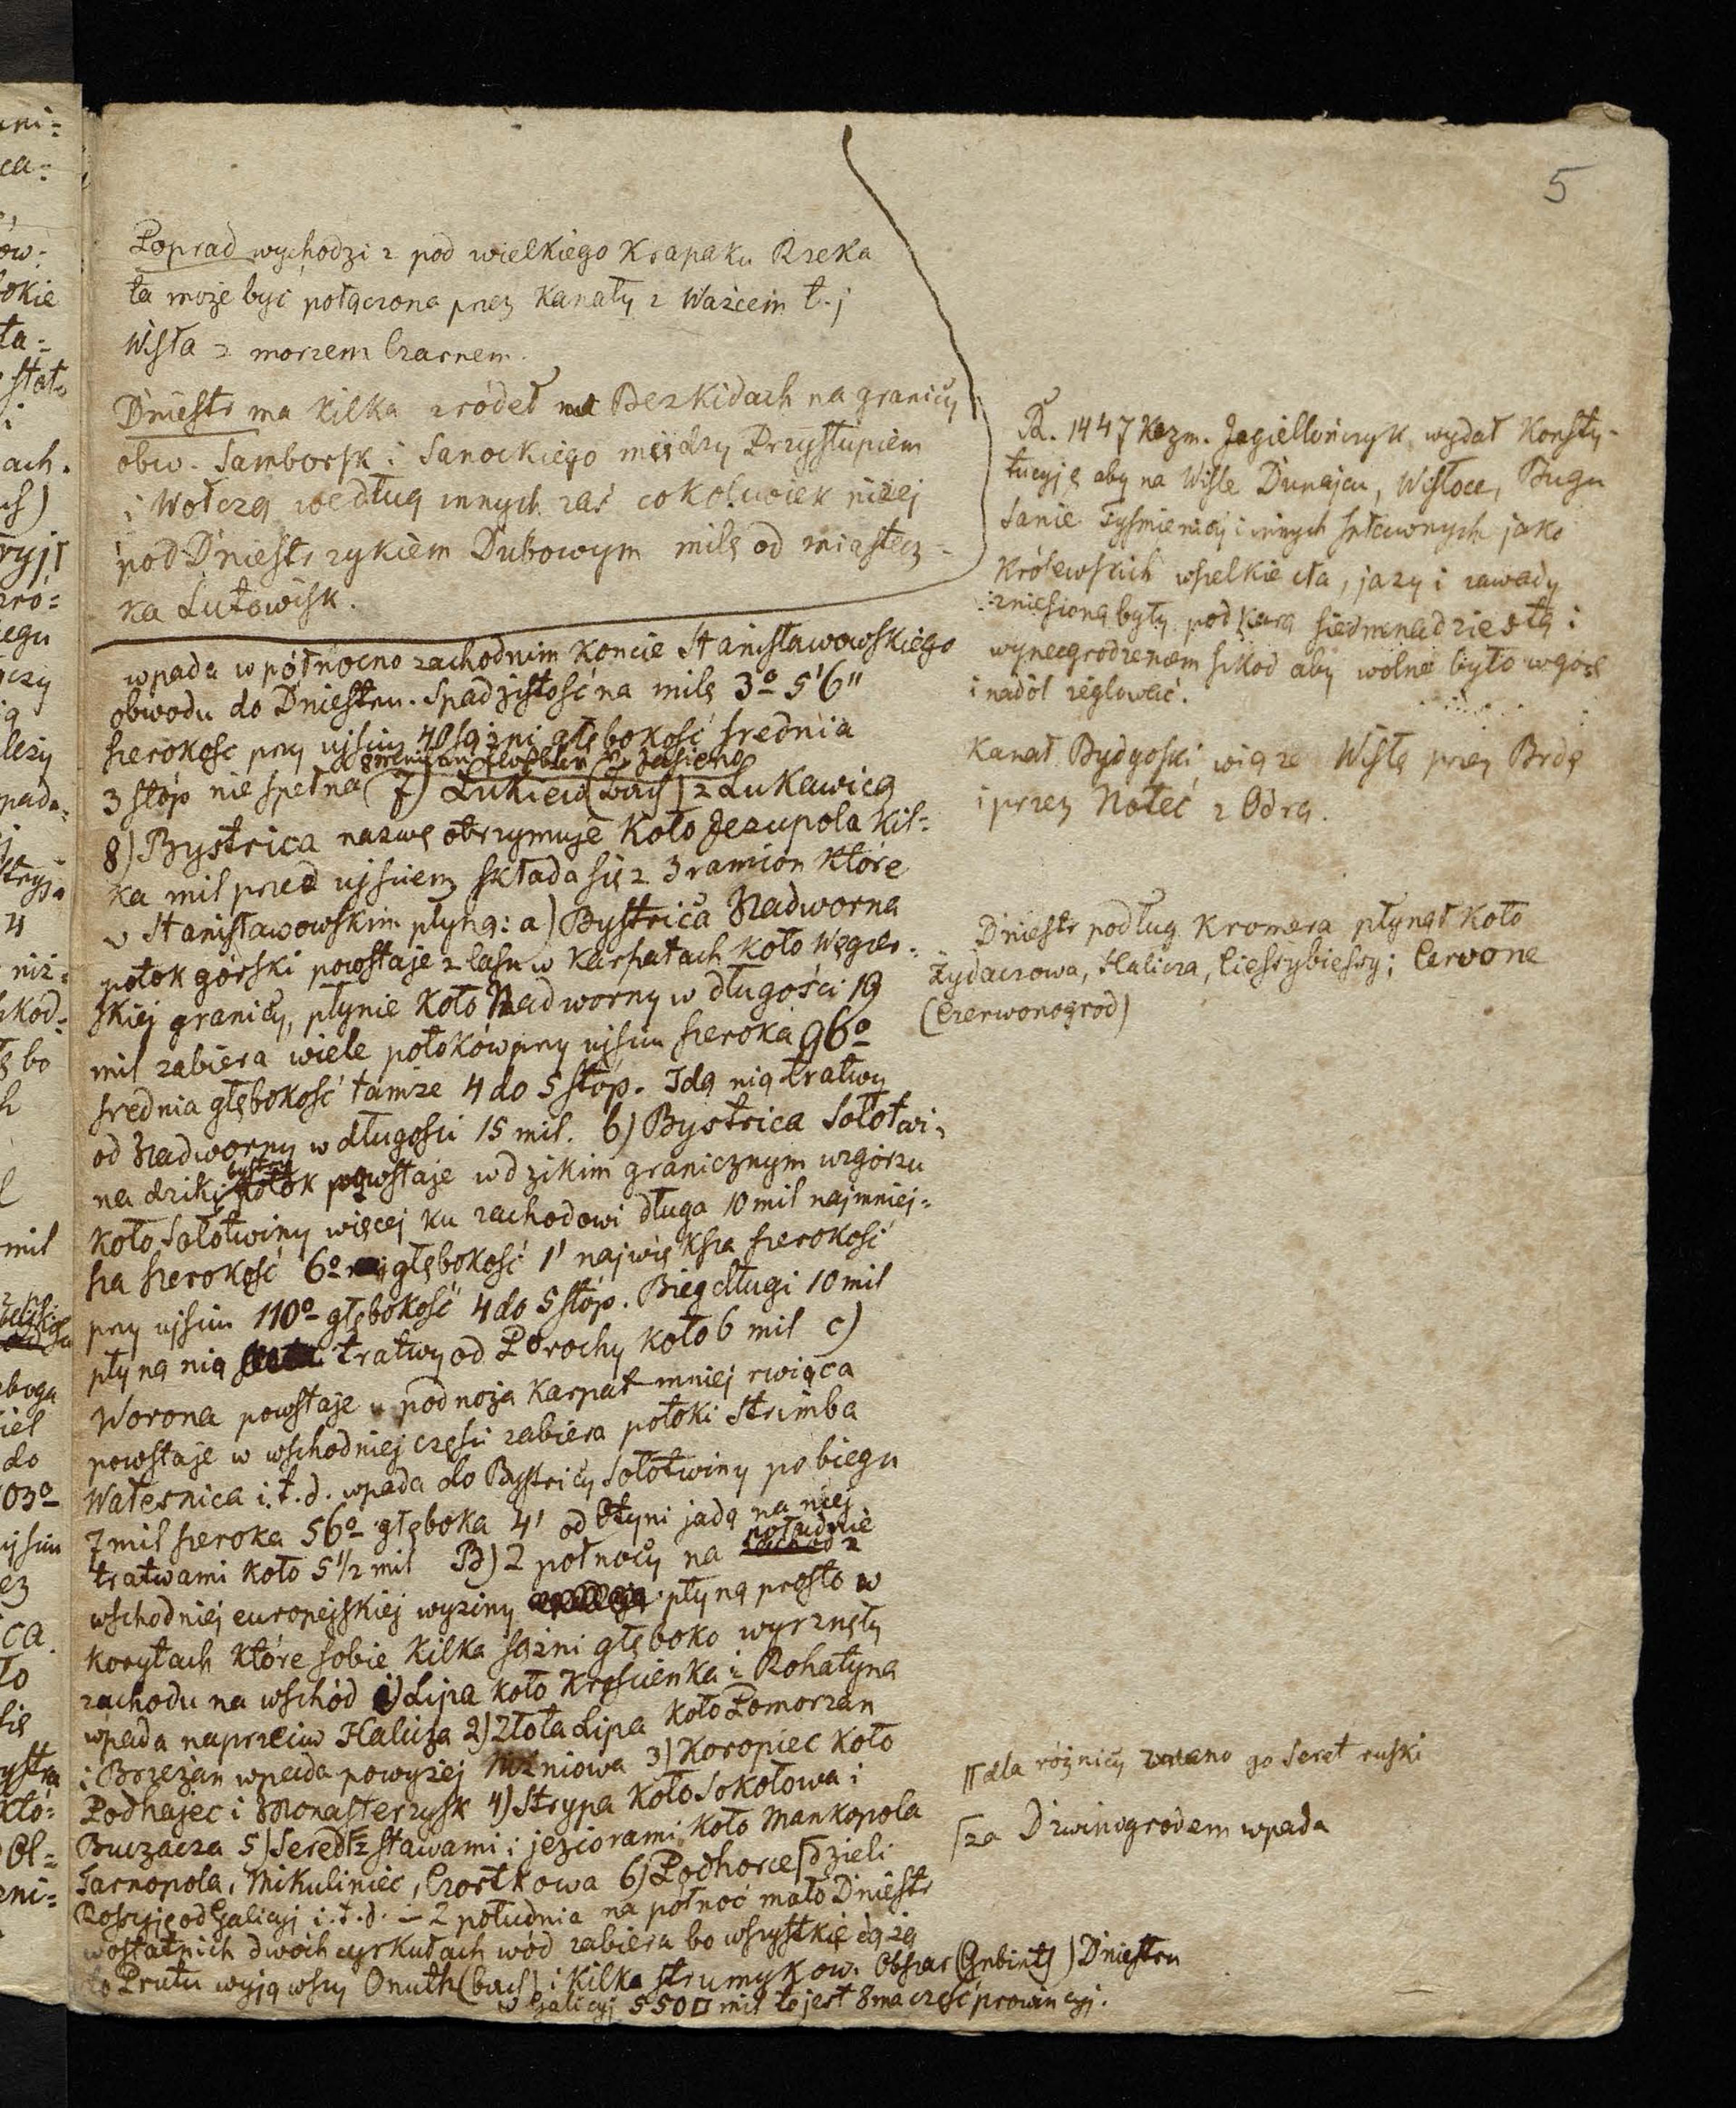 5
Poprad wychodzi z pod wielkiego Krapaku Rzeka
ta może być połączona przez Kanały z Ważcem t.j
Wisła z morzem Czarnem.
Dniestr ma kilka źródeł na Bezkidach na granicy
obw. Samborsk i Sanockiego między Przysłupiem
i Wołczą według innych zaś cokolwiek niżej
pod Dniestrzykiem Dubowym milę od miastecz=
ka Lutowisk.
wpada w północno zachodnim Koncie Stanisławowskiego
obwodu do Dniestru. Spadzistość na milę 3º 5'6"
szerokość przy ujściu 40 sążni głębokość średnia
3 stóp nie spełna 7) Łukiew (bach) z Łukawicą
8) Bystrica nazwę otrzymuje Koło Jezupola kil=
ka mil przed ujściem składa się z 3 ramion które
w Stanisławowskim płyną: a) Bystrica Nadworna
potok górski powstaje z lasu w Karpatach koło Węgier=
skiej granicy, płynie koło Nadworny w długości 19
mil zabiera wiele potoków przy ujściu szeroka 96º
średnia głębokość tamże 4 do 5 stóp. Idą nią tratwy
od Nadworny w długości 15 mil. b) Bystrica Sołotwi=
na dziki bystry potok powstaje w dzikim granicznym wzgórzu
koło Sołotwiny więcej ku zachodowi długa 10 mil najmniej=
sza szerokość 6º głębokość 1' największa szerokość
przy ujściu 110º głębokość 4 do 5 stóp. Bieg długi 10 mil
płyną nią tratwy od Porochy koło 6 mil c)
Worona powstaje u podnoża Karpat mniej rwiąca
powstaje w wschodniej części zabiera potoki Strimba
Watesnica i.t.d. wpada do Bystricy Sołotwiny po biegu
7 mil szeroka 56º głęboka 4' od Otyni jadą na niej
tratwami koło 5 1/2 mil B) Z północy na południe zachod z
wschodniej europejskiej wyżiny płyną prosto w
korytach które sobie kilka sążni głęboko wyrznęły
zachodu na wschód 1) Lipa koło Krościenka i Rohatyna
wpada naprzeciw Halicza 2) Złota Lipa koło Pomorzan
i Brzeżan wpada powyżej Niżniowa 3) Koropiec koło
Podhajec i Monasterzysk 4) Strypa koło Sokołowa i
Buczacza 5) Sered z stawami i jeziorami koło Mankopola
Tarnopola, Mikuliniec, Czortkowa 6) Podhorce dzieli
Rossyję od Galicyj i.t.d. – Z południa na północ mało Dniestr
w ostatnich dwóch cyrkułach wód zabiera bo wszystkie dążą
do Prutu wyjąwszy Onuth (bach) i kilka strumyków. Obszar (Gebiets) Dniestru
w Galicyj 550 □ mil to jest 8ma część prowincyj.
R. 1447 Kazm. Jagiellończyk wydał Konsty-
tucyję aby na Wiśle Dunajcu, Wisłoce, Bugu
Sanie Tyśmienicy i innych spławnych jako
Królewskich wszelkie cła, jazy i zawady
zniesioną były pod karą siedmnadziestą i
wynagrodzeniem szkod aby wolne było w górę
i nadół żeglować.
Kanał Bydgoski wiąże Wisłę przez Brdę
i przez Noteć z Odrą.
Dniestr podług Kromera płynął koło
Żydaczowa, Halicza, Ciessybiessy; Cervone
(Czerwonogrod)
dla różnicy zwano go Seret ruski
za Dzwinogrodem wpada